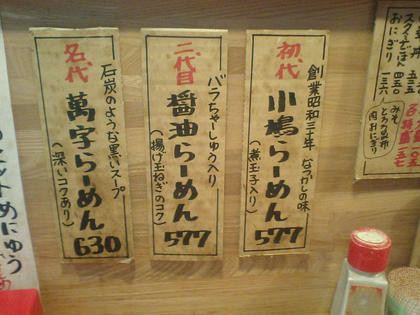 初代
創業昭和三十年 なつかしの味
小鳩らーめん
(煮玉子入り)
577
二代目
バラちゃーしゅう入り
醤油らーめん
(揚げ玉ねぎのコク)
577
名代
石炭のような黒いスープ
萬字らーめん
(深いコクあり)
630
おにぎり
一三六
みそ
とろろ昆布
肉おにぎり
セットめにゅう